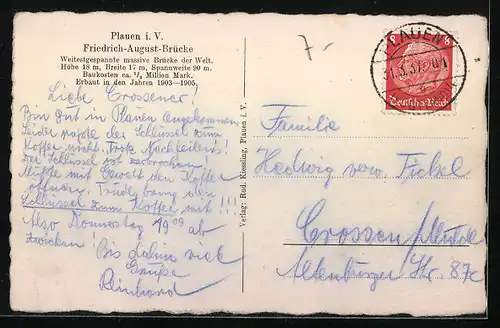 Plauen i. V.
Friedrich-August-Brücke
Weitestgespannte massive Brücke der Welt.
Höhe 18 m, Breite 17 m, Spannweite 90 m.
Baukosten ca. ½ Million Mark.
Erbaut in den Jahren 1903—1905.
Liebe Crossener!
Bin gut in Plauen angekommen
Leider paßte der Schlüssel zum
Koffer nicht. Trotz Nachfeilens!
Der Schlüssel ist zerbrochen!
Mußte mit Gewalt den Koffer
öffnen. Trude bring den
Schlüssel zum Koffer mit!!!
Also Donnerstag 19 09 ab
Zwickau! Bis dahin viele
Grüße
Reinhard
Verlag: Rud. Kiessling, Plauen i. V.
7.-
PLAUEN
Deutsches Reich
Familie
Hedwig verw. Fickel
Crossen/Mulde
Altenburger Str. 87c